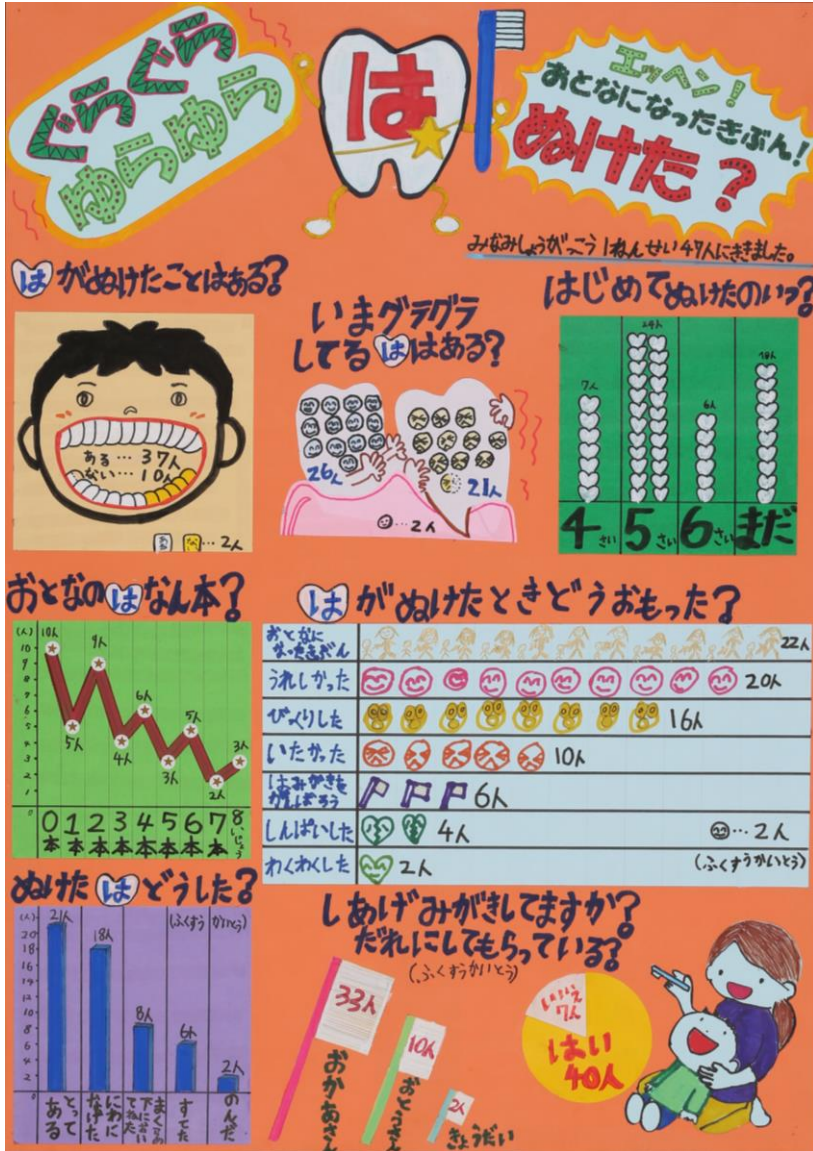 ぐらぐら
ゆらゆら
は
エッヘン！
おとなになったきぶん！
ぬけた？
みなみしょうがっこう1ねんせい47人にききました。
はがぬけたことはある？
ある…37人
ない…10人
ある
ない
…2人
いまグラグラ
してるははある？
26人
21人
…2人
はじめてぬけたのいつ？
7人
24人
6人
10人
4さい
5さい
6さい
まだ
おとなのはなん本？
(人)
10
9
8
7
6
5
4
3
2
1
0
10人
5人
9人
4人
6人
3人
5人
2人
3人
0本
1本
2本
3本
4本
5本
6本
7本
8いじょう
はがぬけたときどうおもった？
おとなに
なったきぶん
22人
うれしかった
20人
びっくりした
16人
いたかった
10人
はみがきを
がんばろう
6人
しんぱいした
4人
…2人
わくわくした
2人
(ふくすうかいとう)
ぬけたはどうした？
(人)
(ふくすうかいとう)
20
18
16
14
12
10
8
6
4
2
21人
18人
8人
6人
2人
とって
ある
にわに
なげた
まくらの
下において
ねた
すてた
のんだ
しあげみがきしてますか？
だれにしてもらっている？
(ふくすうかいとう)
33人
おかあさん
10人
おとうさん
2人
きょうだい
いいえ
7人
はい
40人